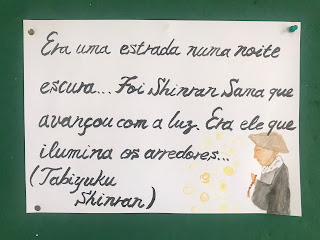 Era uma estrada numa noite
escura... Foi Shinran Sama que
avançou com a luz. Era ele que
ilumina os arredores...
(Tabiyuku
Shinran)